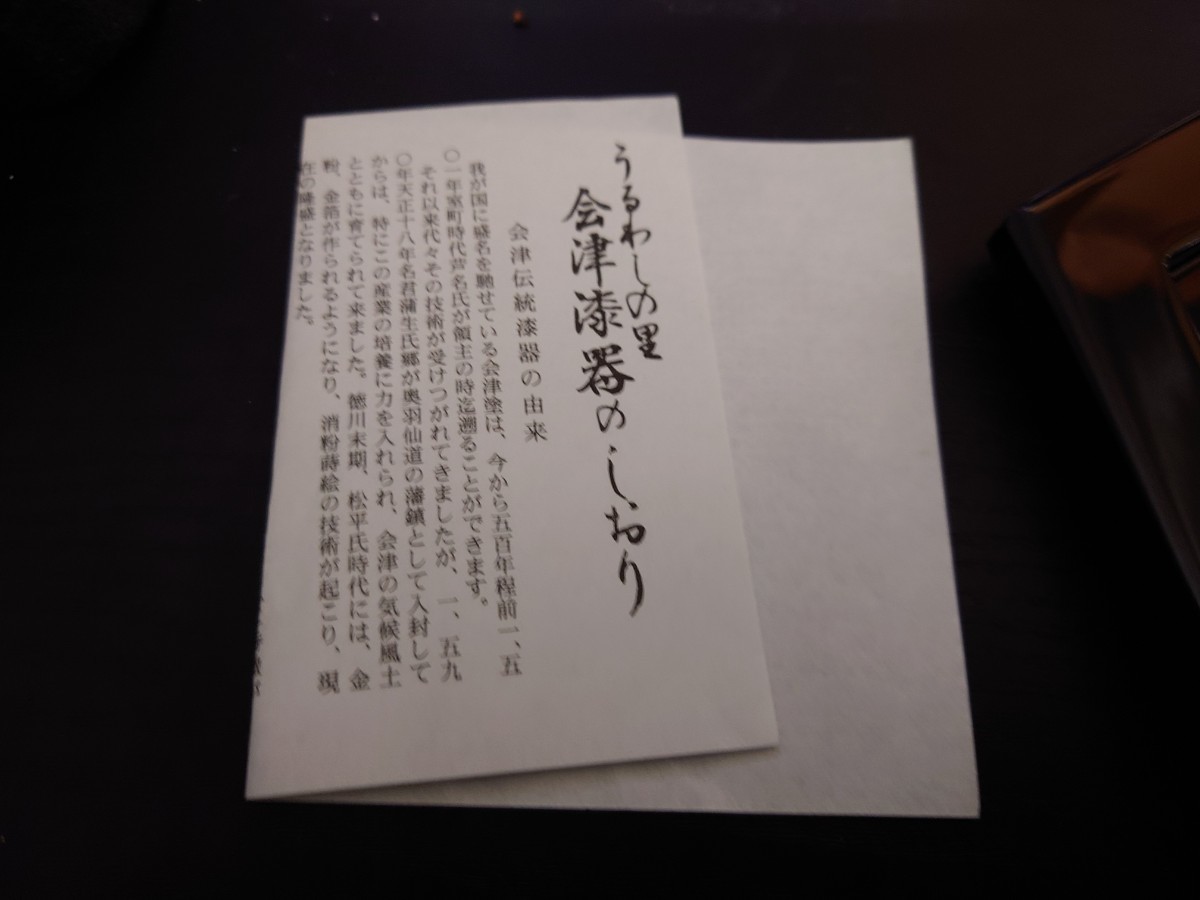 うるわしの里
会津漆器のしおり
会津伝統漆器の由来
我が国に盛名を馳せている会津塗は、今から五百年程前一、五
〇一年室町時代芦名氏が領主の時迄遡ることができます。
それ以来代々その技術が受けつがれてきましたが、一、五九
〇年天正十八年名君蒲生氏郷が奥羽仙道の藩鎮として入封して
からは、特にこの産業の培養に力を入れられ、会津の気候風土
とともに育てられて来ました。徳川末期、松平氏時代には、金
粉、金箔が作られるようになり、消粉蒔絵の技術が起こり、現
在の隆盛となりました。